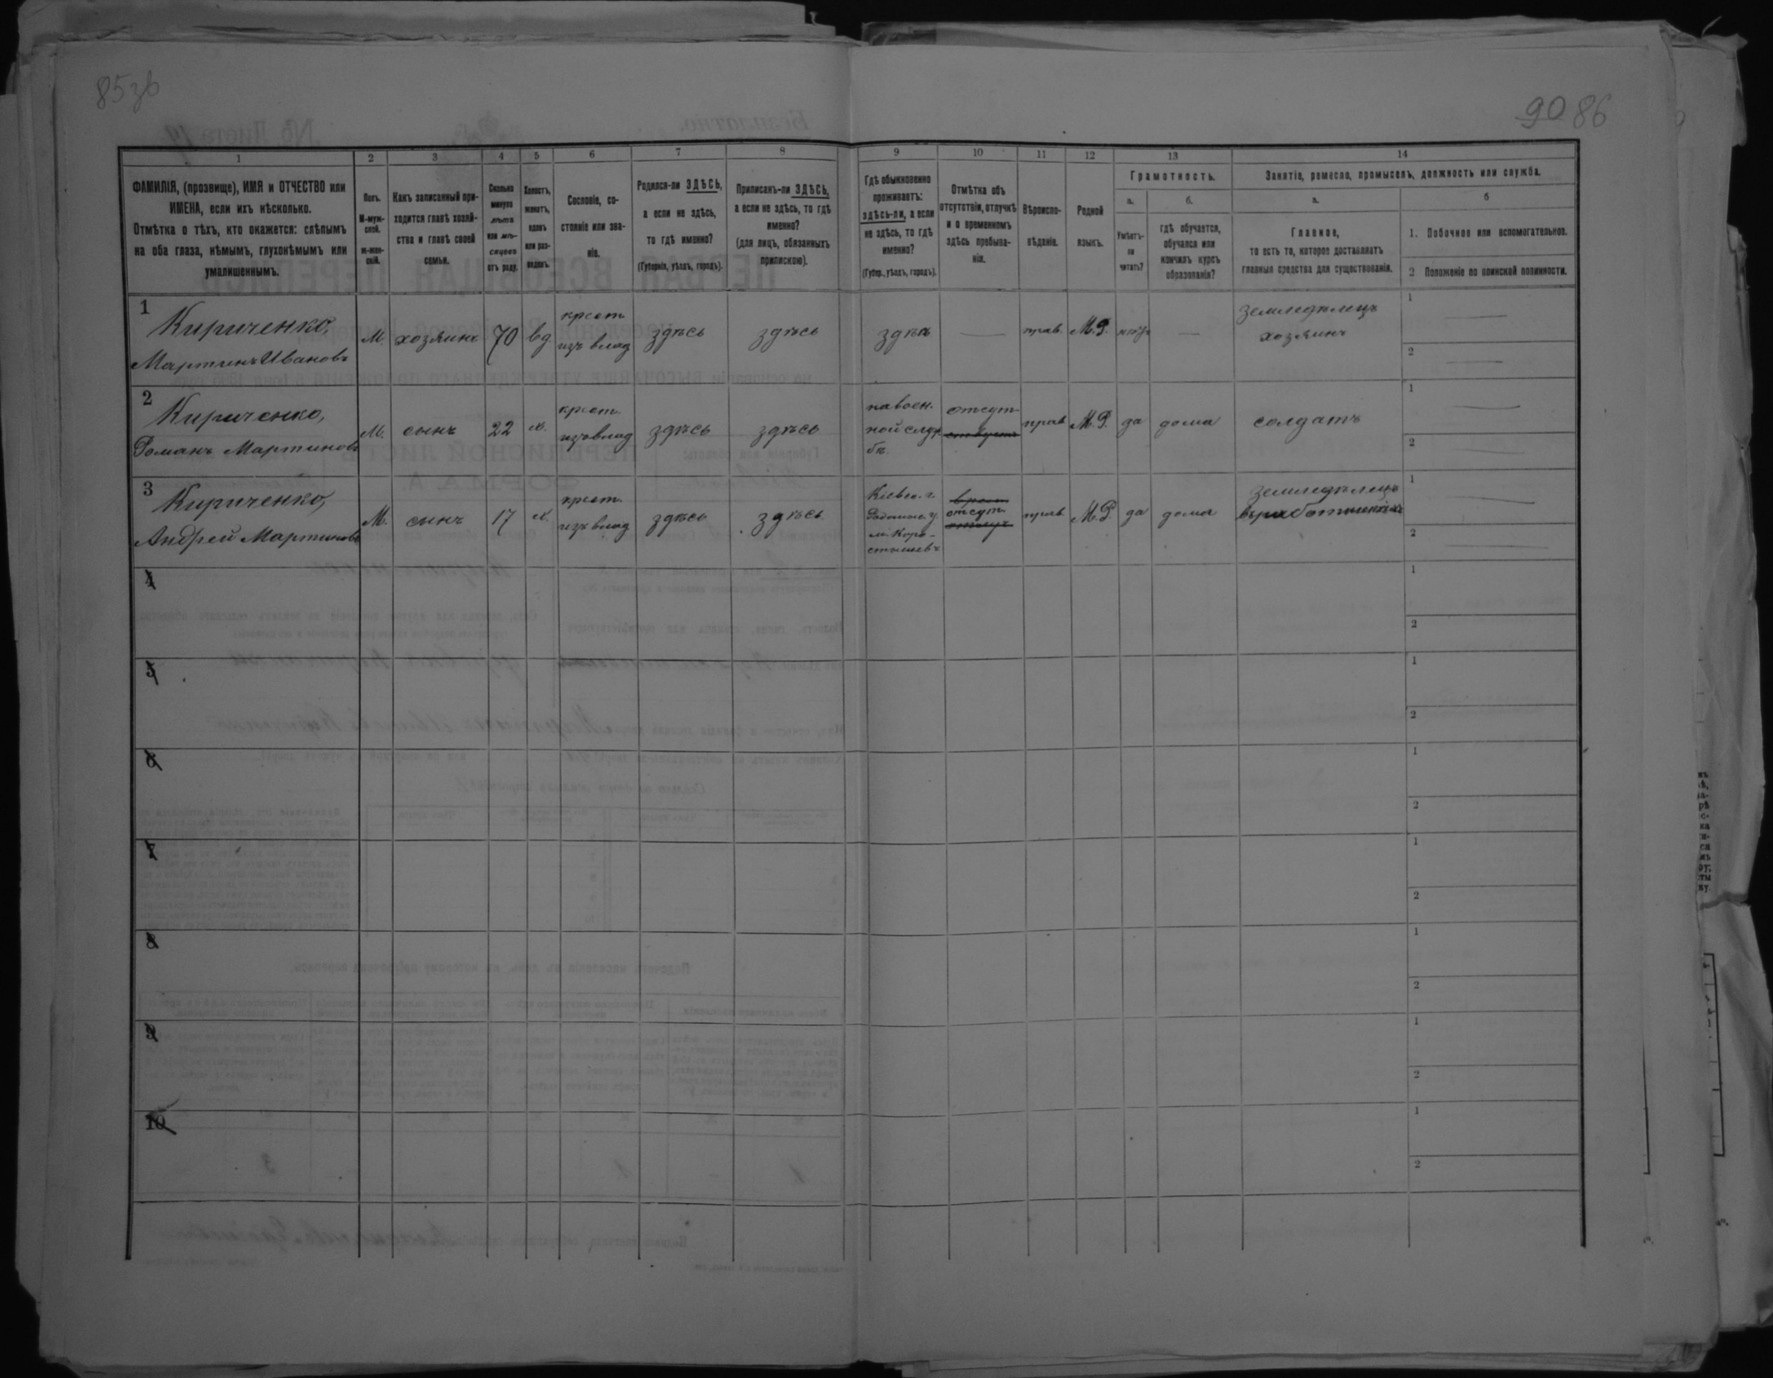 85зв
90 86
1
2
3
4
5
6
7
8
9
10
11
12
13
14
ФАМИЛІЯ, (прозвище), ИМЯ и ОТЧЕСТВО или
ИМЕНА, если ихъ нѣсколько.
Отмѣтка о тѣхъ, кто окажется: слѣпымъ
на оба глаза, нѣмымъ, глухонѣмымъ или
умалишеннымъ.
Полъ.
М-муж-
ской.
ж-жен-
скій.
Какъ записанный при-
ходится главѣ хозяй-
ства и главѣ своей
семьи.
Сколько
минуло
лѣтъ
или мѣ-
сяцевъ
отъ роду.
Холостъ,
женатъ,
вдовъ
или раз-
веденъ.
Сословіе, со-
стояніе или зва-
ніе.
Родился-ли ЗДѢСЬ,
а если не здѣсь,
то гдѣ именно?
(Губернія, уѣздъ, городъ).
Приписанъ-ли ЗДѢСЬ,
а если не здѣсь, то гдѣ
именно?
(для лицъ, обязанныхъ
припискою).
Гдѣ обыкновенно
проживаетъ:
здѣсь-ли, а если
не здѣсь, то гдѣ
именно?
(Губер., уѣздъ, городъ).
Отмѣтка объ
отсутствіи, отлучкѣ
и о временномъ
здѣсь пребыва-
ніи.
Вѣроиспо-
вѣданіе.
Родной
языкъ.
Грамотность.
а.
Умѣетъ-
ли
читать?
б.
гдѣ обучается,
обучался или
кончилъ курсъ
образованія?
Занятіе, ремесло, промыселъ, должность или служба.
а.
Главное,
то есть то, которое доставляетъ
главныя средства для существованія.
б
1. Побочное или вспомогательное.
2 Положеніе по воинской повинности.
1
Кириченко,
Мартинъ Ивановъ
М
хозяинъ
70
вд
крест.
изъ влад
здѣсь
здѣсь
здѣсь
—
прав.
М.Р.
—
земледѣлецъ
хозяинъ
1
—
2
—
2
Кириченко,
Романъ Мартиновъ
М.
сынъ
22
х.
крест.
изъ влад
здѣсь
здѣсь
на воен-
ной служ
бѣ
отсут
прав
М.Р.
да
дома
солдатъ
1
—
2
—
3
Кириченко,
Андрей Мартиновъ
М.
сынъ
17
х.
крест.
изъ влад
здѣсь
здѣсь
Кіевск. г.
Радомыс. у
м. Коро-
стышевъ
отсут
прав
М.Р.
да
дома
земледѣлецъ
въ работникахъ
1
—
2
—
4
1
2
5
1
2
6
1
2
7
1
2
8
1
2
9
1
2
10
1
2